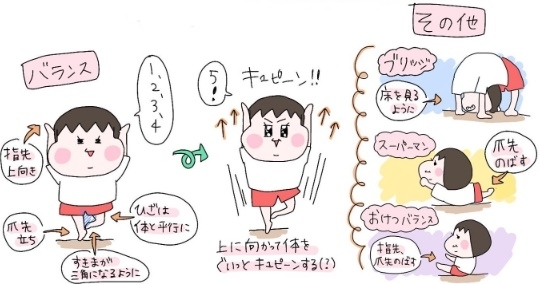 バランス
1、2、3、4
指先
上向き
爪先
立ち
ひざは
体と平行に
すきまが
三角になるように
5!
キュピーン!!
上に向かって体を
ぐいっとキュピーンする(?)
その他
ブリッジ
床を見る
ように
スーパーマン
爪先
のばす
おけつバランス
指先、
爪先のばす